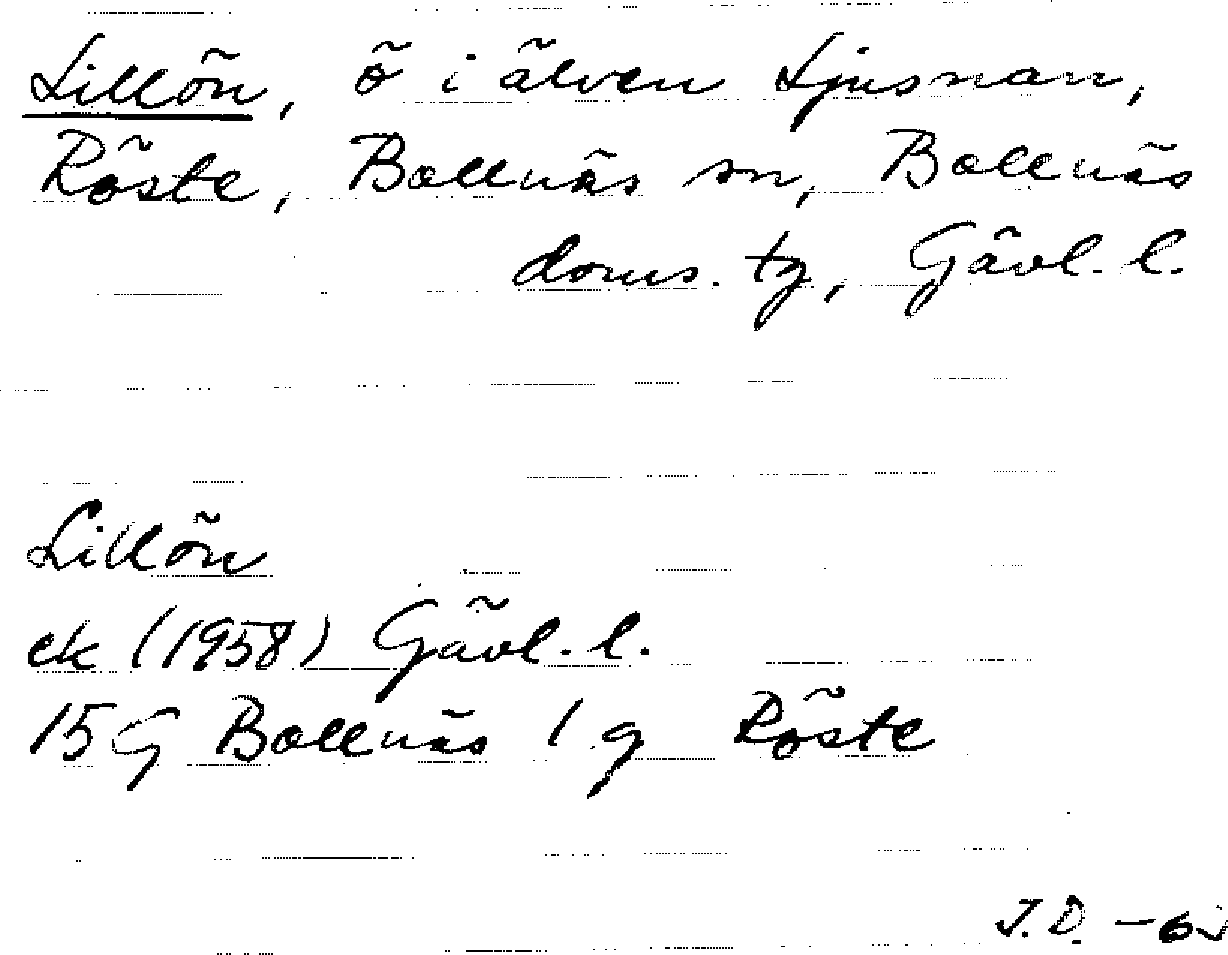 Lillön, ö i älven Ljusnan,
Röste, Bollnäs sn, Bollnäs
doms. tg, Gävl. l.
Lillön
ek (1958) Gävl. l.
15G Bollnäs 1 g Röste
J.D.